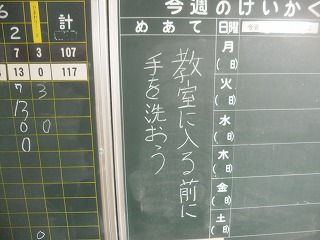 6 計
2
7 3 107
13 0 117
7 3
13
0 0
0
0
今週のけいかく
めあて 日曜
教室に入る前に
手を洗おう
月
(日)
火
(日)
水
(日)
木
(日)
金
(日)
土
(日)